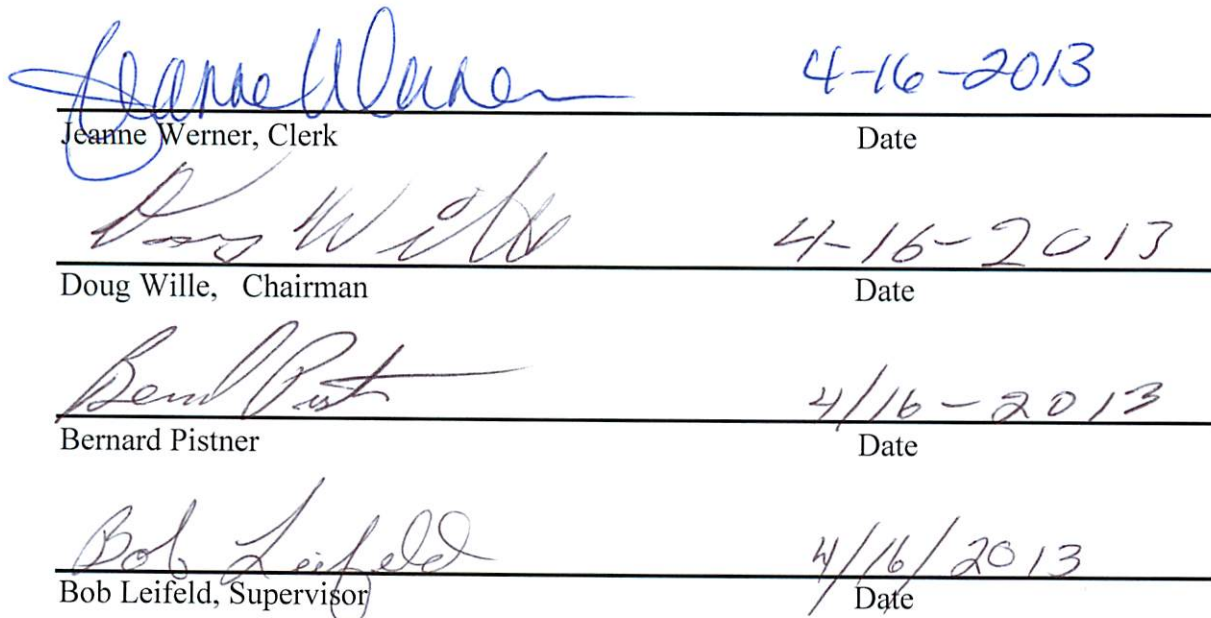 Jeanne Werner 4-16-2013
Jeanne Werner, Clerk Date
Doug Wille 4-16-2013
Doug Wille, Chairman Date
Bernard Pistner 4/16-2013
Bernard Pistner Date
Bob Leifeld 4/16/2013
Bob Leifeld, Supervisor Date